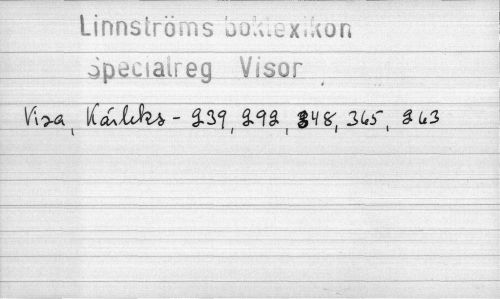 Linnströms boklexikon
Specialreg Visor
Visa, Kärleks - 239, 292, 348, 365, 263